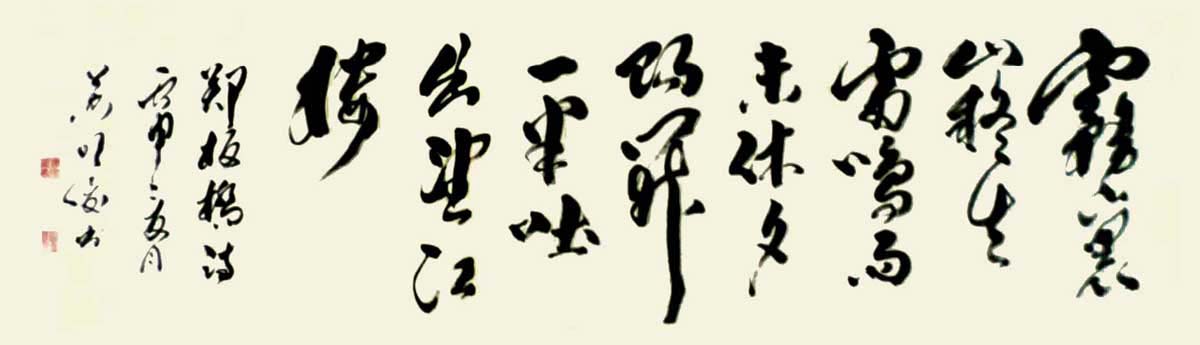 霧裹
山疑失
雷鳴雨
未休夕
陽開
一半吐
出望江
樓
鄭板橋詩
丙申夏月
書